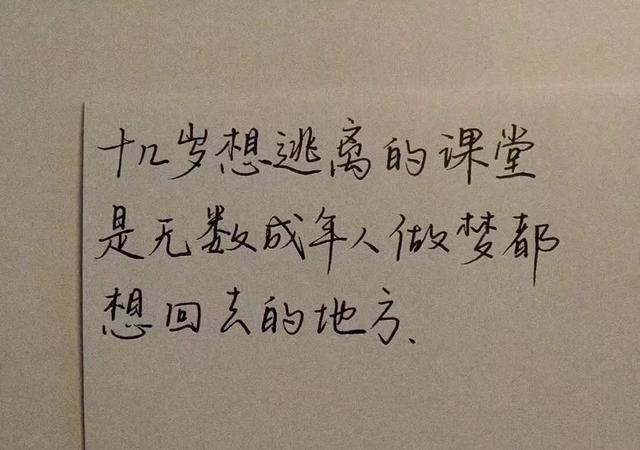 十几岁想逃离的课堂
是无数成年人做梦都
想回去的地方、